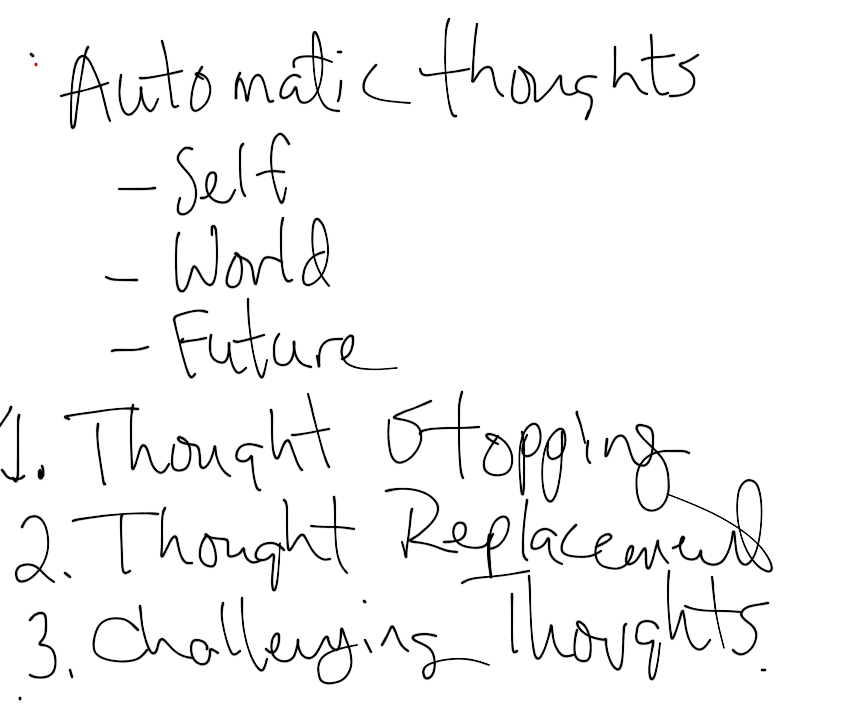 Automatic thoughts
- Self
- World
- Future
1. Thought Stopping
2. Thought Replacement
3. Challenging Thoughts.